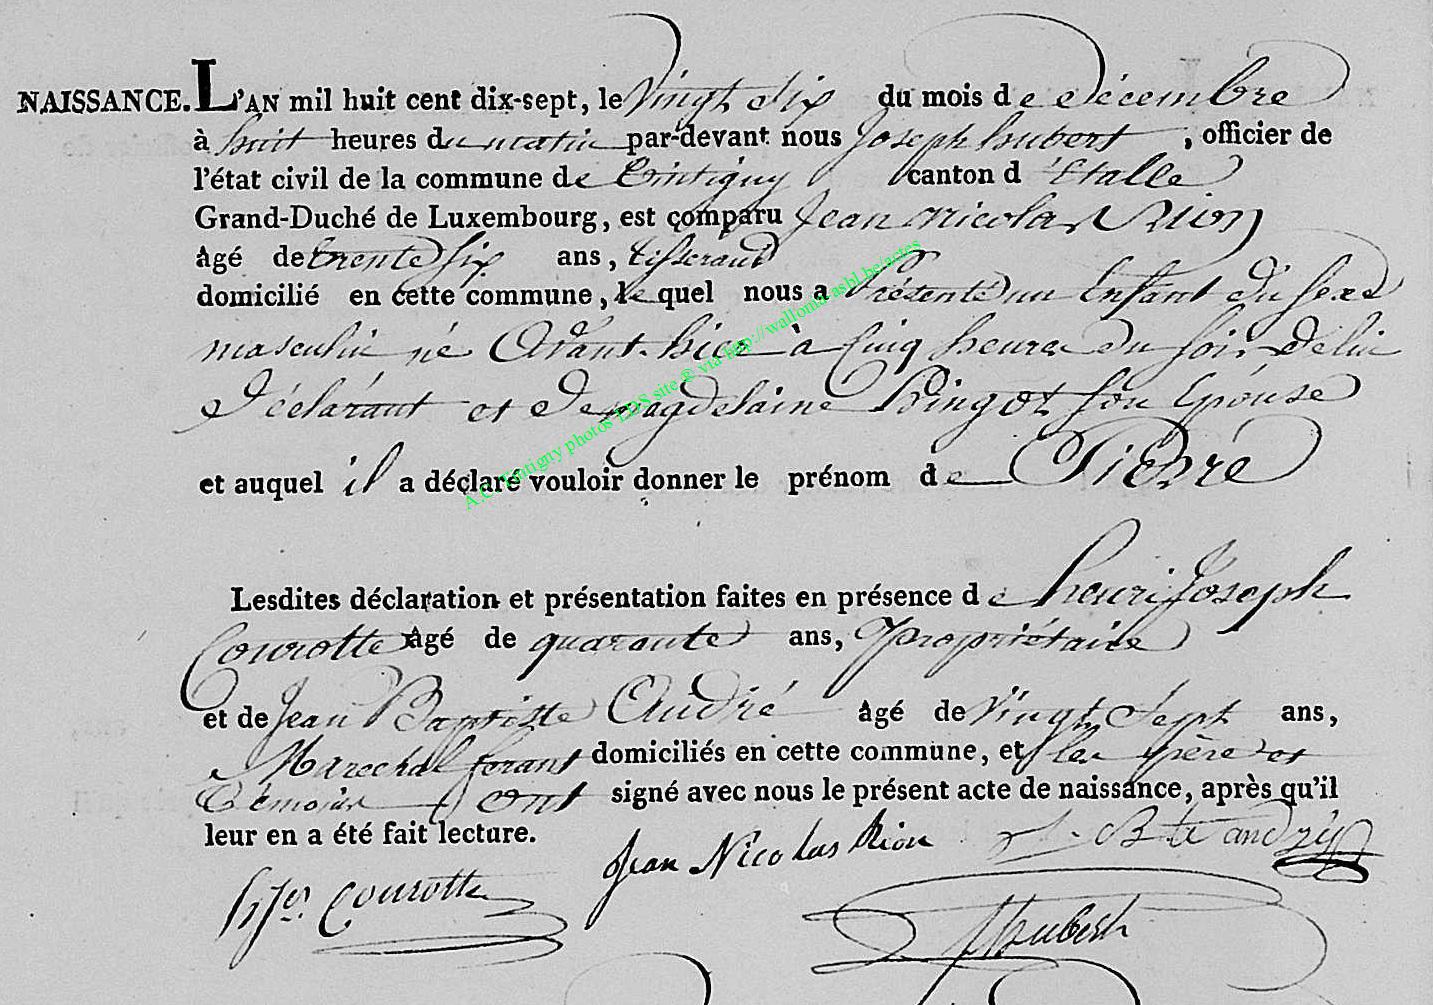 NAISSANCE. L'AN mil huit cent dix-sept, le Vingt Six du mois de décembre
à huit heures du matin par-devant nous Joseph hubert , officier de
l'état civil de la commune de tintigny canton d'Etalle
Grand-Duché de Luxembourg, est comparu Jean Nicolas Rion
âgé de trente Six ans, tisserand
domicilié en cette commune, le quel nous a Présenté un Enfant du sexe
masculin né Avant-hier à Cinq heures du soir de lui
Déclarant et de magdelaine Pingot son Epouse
et auquel il a déclaré vouloir donner le prénom de Pierre
Lesdites déclaration et présentation faites en présence de henri Joseph
Courotte âgé de quarante ans, Propriétaire
et de Jean Baptiste André âgé de Vingt Sept ans,
Marechal ferant domiciliés en cette commune, et les père et
témoins ont signé avec nous le présent acte de naissance, après qu'il
leur en a été fait lecture.
Jean Nicolas Rion J. Bte andré
hJos Courotte
JHubert
A.C. Tintigny photos LDS site ® via http://wallonia-asbl.be/actes